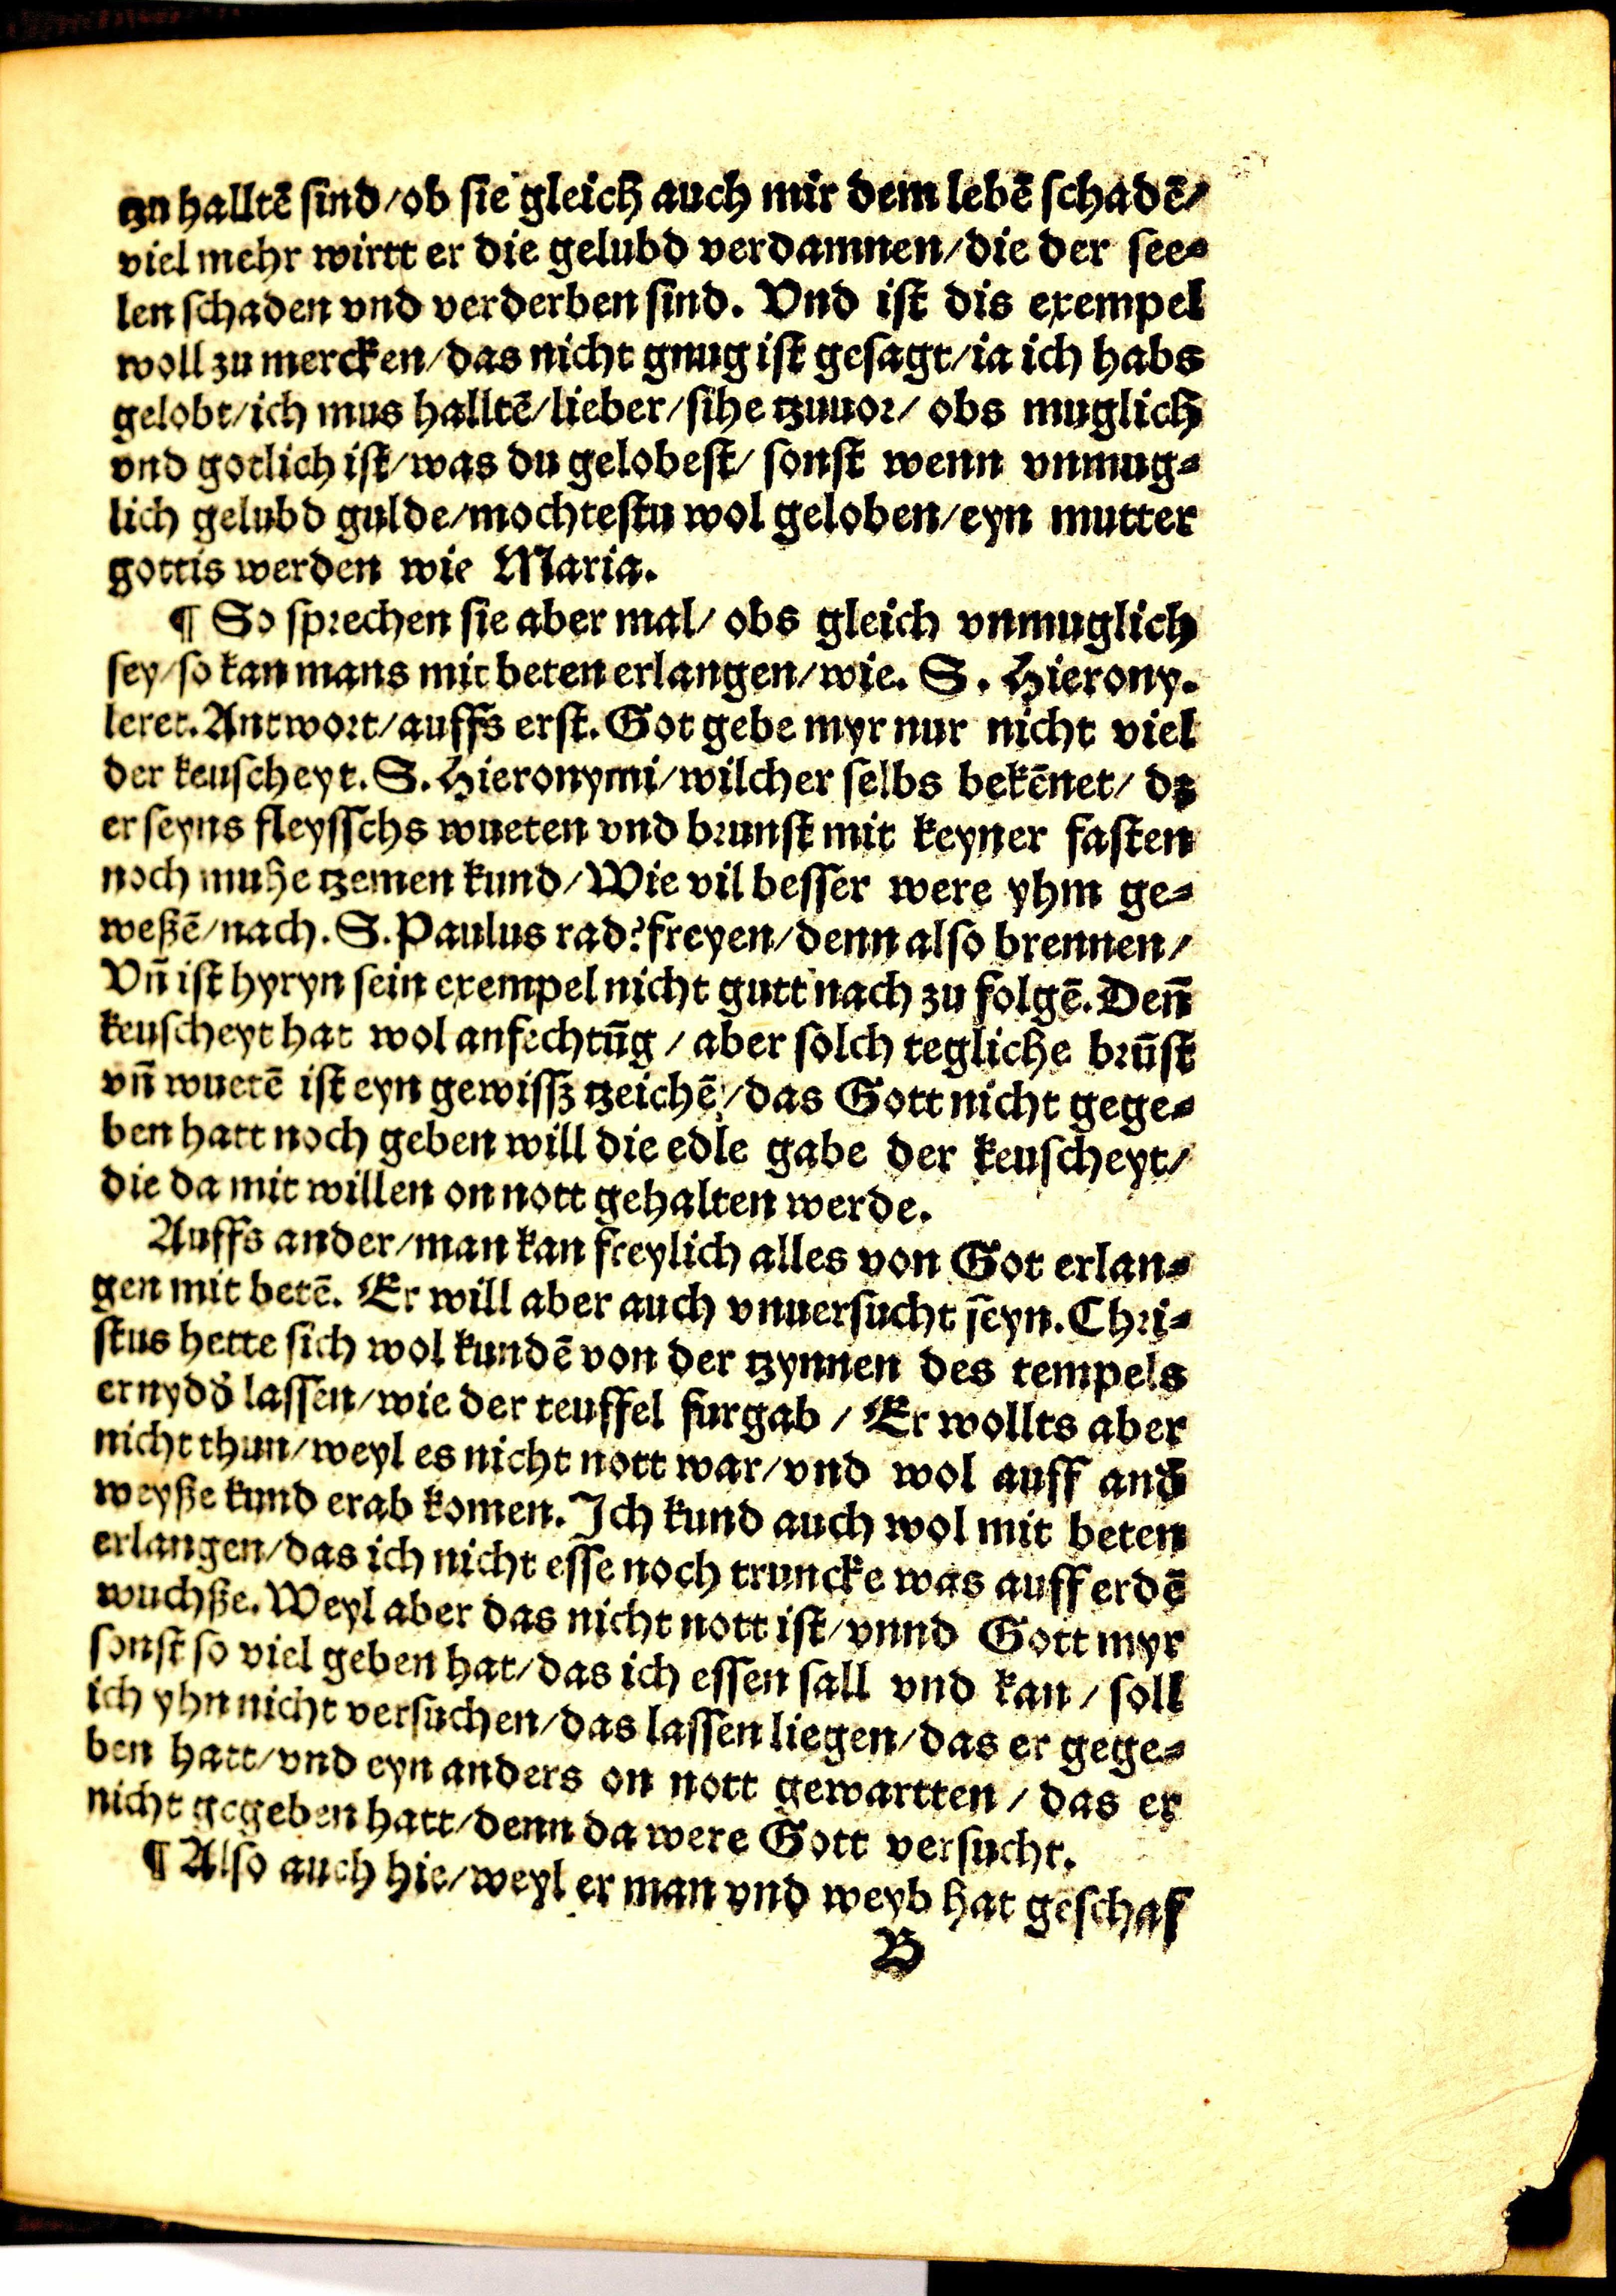 tzu halltē sind/ob sie gleich auch mir dem lebē schadē/
viel mehr wirtt er die gelubd verdamnen/die der see⸗
len schaden vnd verderben sind. Vnd ist dis exempel
woll zu mercken/das nicht gnug ist gesagt/ia ich habs
gelobt/ich mus halltē/lieber/sihe tzuuor/ obs muglich
vnd gotlich ist/was du gelobest/ sonst wenn vnmug⸗
lich gelubd gulde/mochtestu wol geloben/eyn mutter
gottis werden wie Maria.
¶ So sprechen sie aber mal/ obs gleich vnmuglich
sey/so kan mans mit beten erlangen/wie. S. Hierony.
leret. Antwort/auffs erst. Got gebe myr nur nicht viel
der keuscheyt. S. Hieronymi/wilcher selbs bekēnet/ dz
er seyns fleysschs wueten vnd brunst mit keyner fasten
noch muhe tzemen kund/Wie vil besser were yhm ge⸗
weßē/nach. S. Paulus rad? freyen/denn also brennen/
Vn̄ ist hyryn sein exempel nicht gutt nach zu folgē. Den̄
keuscheyt hat wol anfechtūg / aber solch tegliche brūst
vn̄ wuetē ist eyn gewissz tzeichē/das Gott nicht gege⸗
ben hatt noch geben will die edle gabe der keuscheyt/
die da mit willen on nott gehalten werde.
Auffs ander/man kan freylich alles von Got erlan⸗
gen mit betē. Er will aber auch vnuersucht seyn. Chri⸗
stus hette sich wol kundē von der tzynnen des tempels
ernydd̕ lassen/wie der teuffel furgab / Er wollts aber
nicht thun/weyl es nicht nott war/vnd wol auff and̕
weyße kund erab komen. Ich kund auch wol mit beten
erlangen/das ich nicht esse noch truncke was auff erdē
wuchße. Weyl aber das nicht nott ist/vnnd Gott myr
sonst so viel geben hat/das ich essen sall vnd kan / soll
ich yhn nicht versuchen/das lassen liegen/das er gege⸗
ben hatt/vnd eyn anders on nott gewartten / das er
nicht gegeben hatt/denn da were Gott versucht.
¶ Also auch hie/weyl er man vnd weyb hat geschaf
B